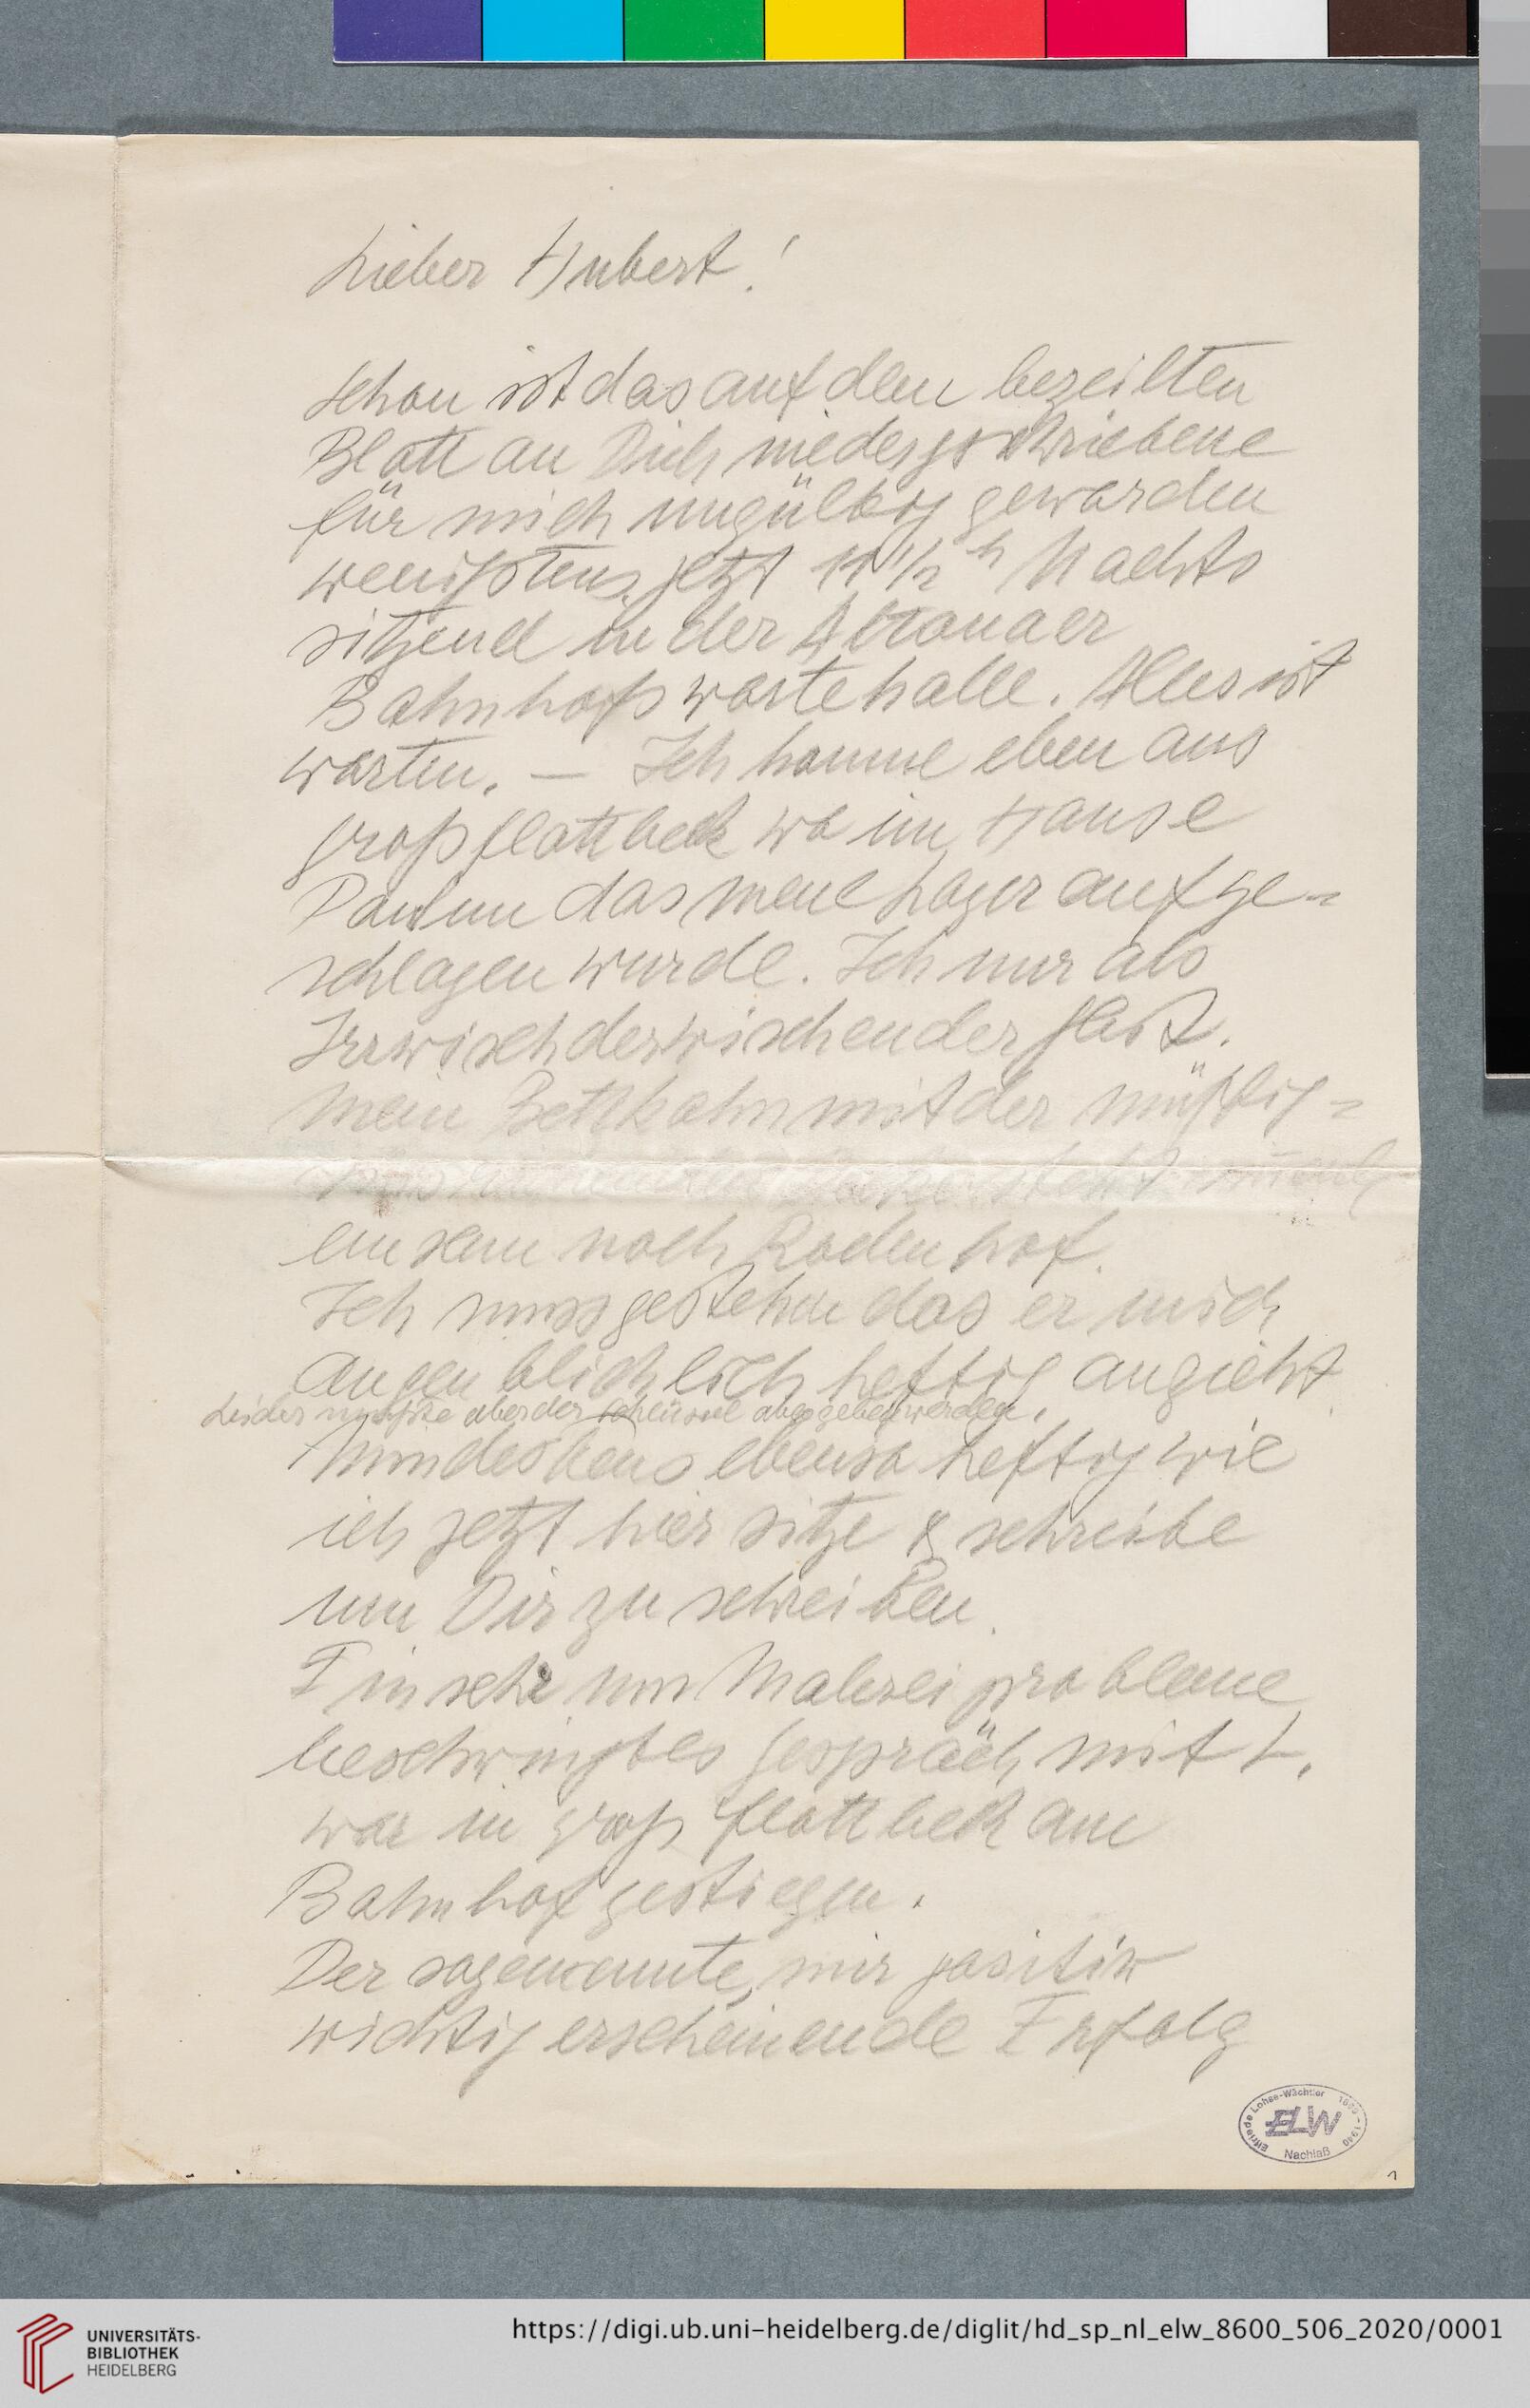 Lieber Hubert!
Schon ist das auf dem bezeilten
Blatt an Dich niedergeschriebene
für mich ungültig geworden
wenigstens jetzt 11 1/2 h Nachts
sitzend in der Altonaer
Bahnhofswartehalle. Alles ist
warten. — Ich komme eben aus
Großflottbeck wo im Hause
das neue Lager aufge-
schlagen wurde. Ich nur als
Irrwisch
Mein Bettkahn mit der
steht
einsam noch Rodenhof.
Ich muss gestehen das er mich
augenblicklich heftig angieht
Leider musste aber der abgegeben werden.
Mindestens ebenso heftig wie
ich jetzt hier sitze & schreibe
um Dir zu schreiben.
Ein sehr um Malereiprobleme
beschwingtes Gespräch mit L.
war in Groß flottbeck am
Bahnhof gestiegen.
Der sogenannte, mir positiv
wichtig erscheinende Erfolg
Elfriede Lohse-Wächtler 1899-1940
ELW
Nachlaß
1
UNIVERSITÄTS-
BIBLIOTHEK
HEIDELBERG
https://digi.ub.uni-heidelberg.de/diglit/hd_sp_nl_elw_8600_506_2020/0001